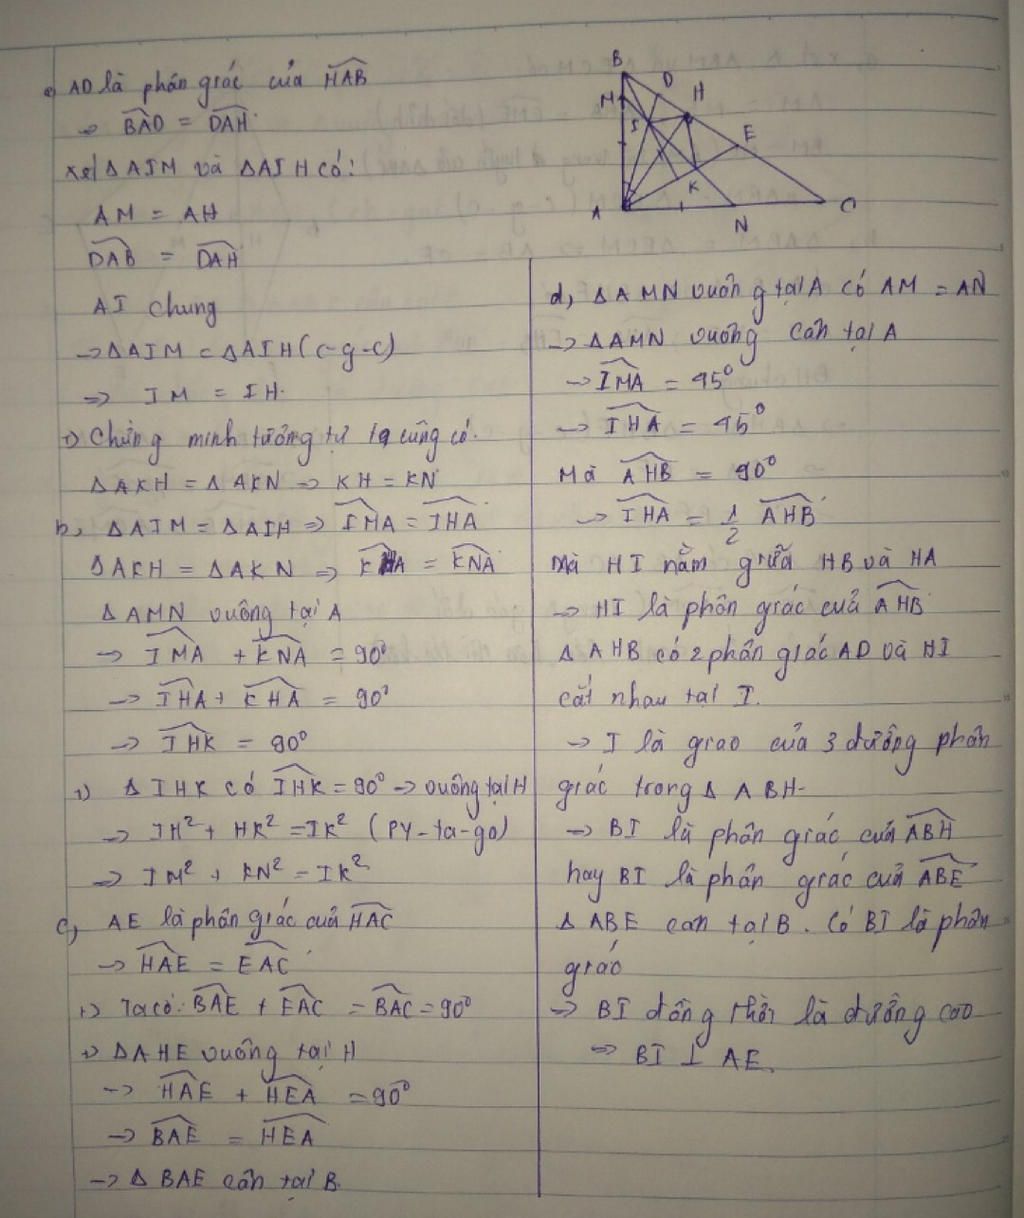 a, AD là phân giác của HAB
→ BAD = DAH
Xét ΔAIM và ΔAIH có:
AM = AH
DAB = DAH
AI chung
→ ΔAIM = ΔAIH (c-g-c)
=> IM = IH.
+) Chứng minh tương tự ta cũng có.
ΔAKH = ΔAKN => KH = KN
b, ΔAIM = ΔAIH => IMA = IHA
ΔAKH = ΔAKN => KHA = KNA
ΔAMN vuông tại A
→ IMA + KNA = 90°
→ IHA + KHA = 90°
→ IHK = 90°
+) ΔIHK có IHK = 90° → vuông tại H
→ IH² + HK² = IK² (PY-ta-go)
=> IM² + KN² = IK²
c, AE là phân giác của HAC
→ HAE = EAC
+) Ta có: BAE + EAC = BAC = 90°
+) ΔAHE vuông tại H
→ HAE + HEA = 90°
→ BAE = HEA
→ Δ BAE cân tại B.
B
D
M
H
I
E
K
A
C
N
d, ΔAMN vuông tại A có AM = AN
→ ΔAMN vuông cân tại A
→ IMA = 45°
→ IHA = 45°
Mà AHB = 90°
→ IHA = 1/2 AHB
Mà HI nằm giữa HB và HA
→ HI là phân giác của AHB
Δ AHB có 2 phân giác AD và HI
cắt nhau tại I.
→ I là giao của 3 đường phân
giác trong Δ ABH.
→ BI là phân giác của ABH
hay BI là phân giác của ABE
Δ ABE cân tại B. Có BI là phân
giác
=> BI đồng thời là đường cao
=> BI ⊥ AE.